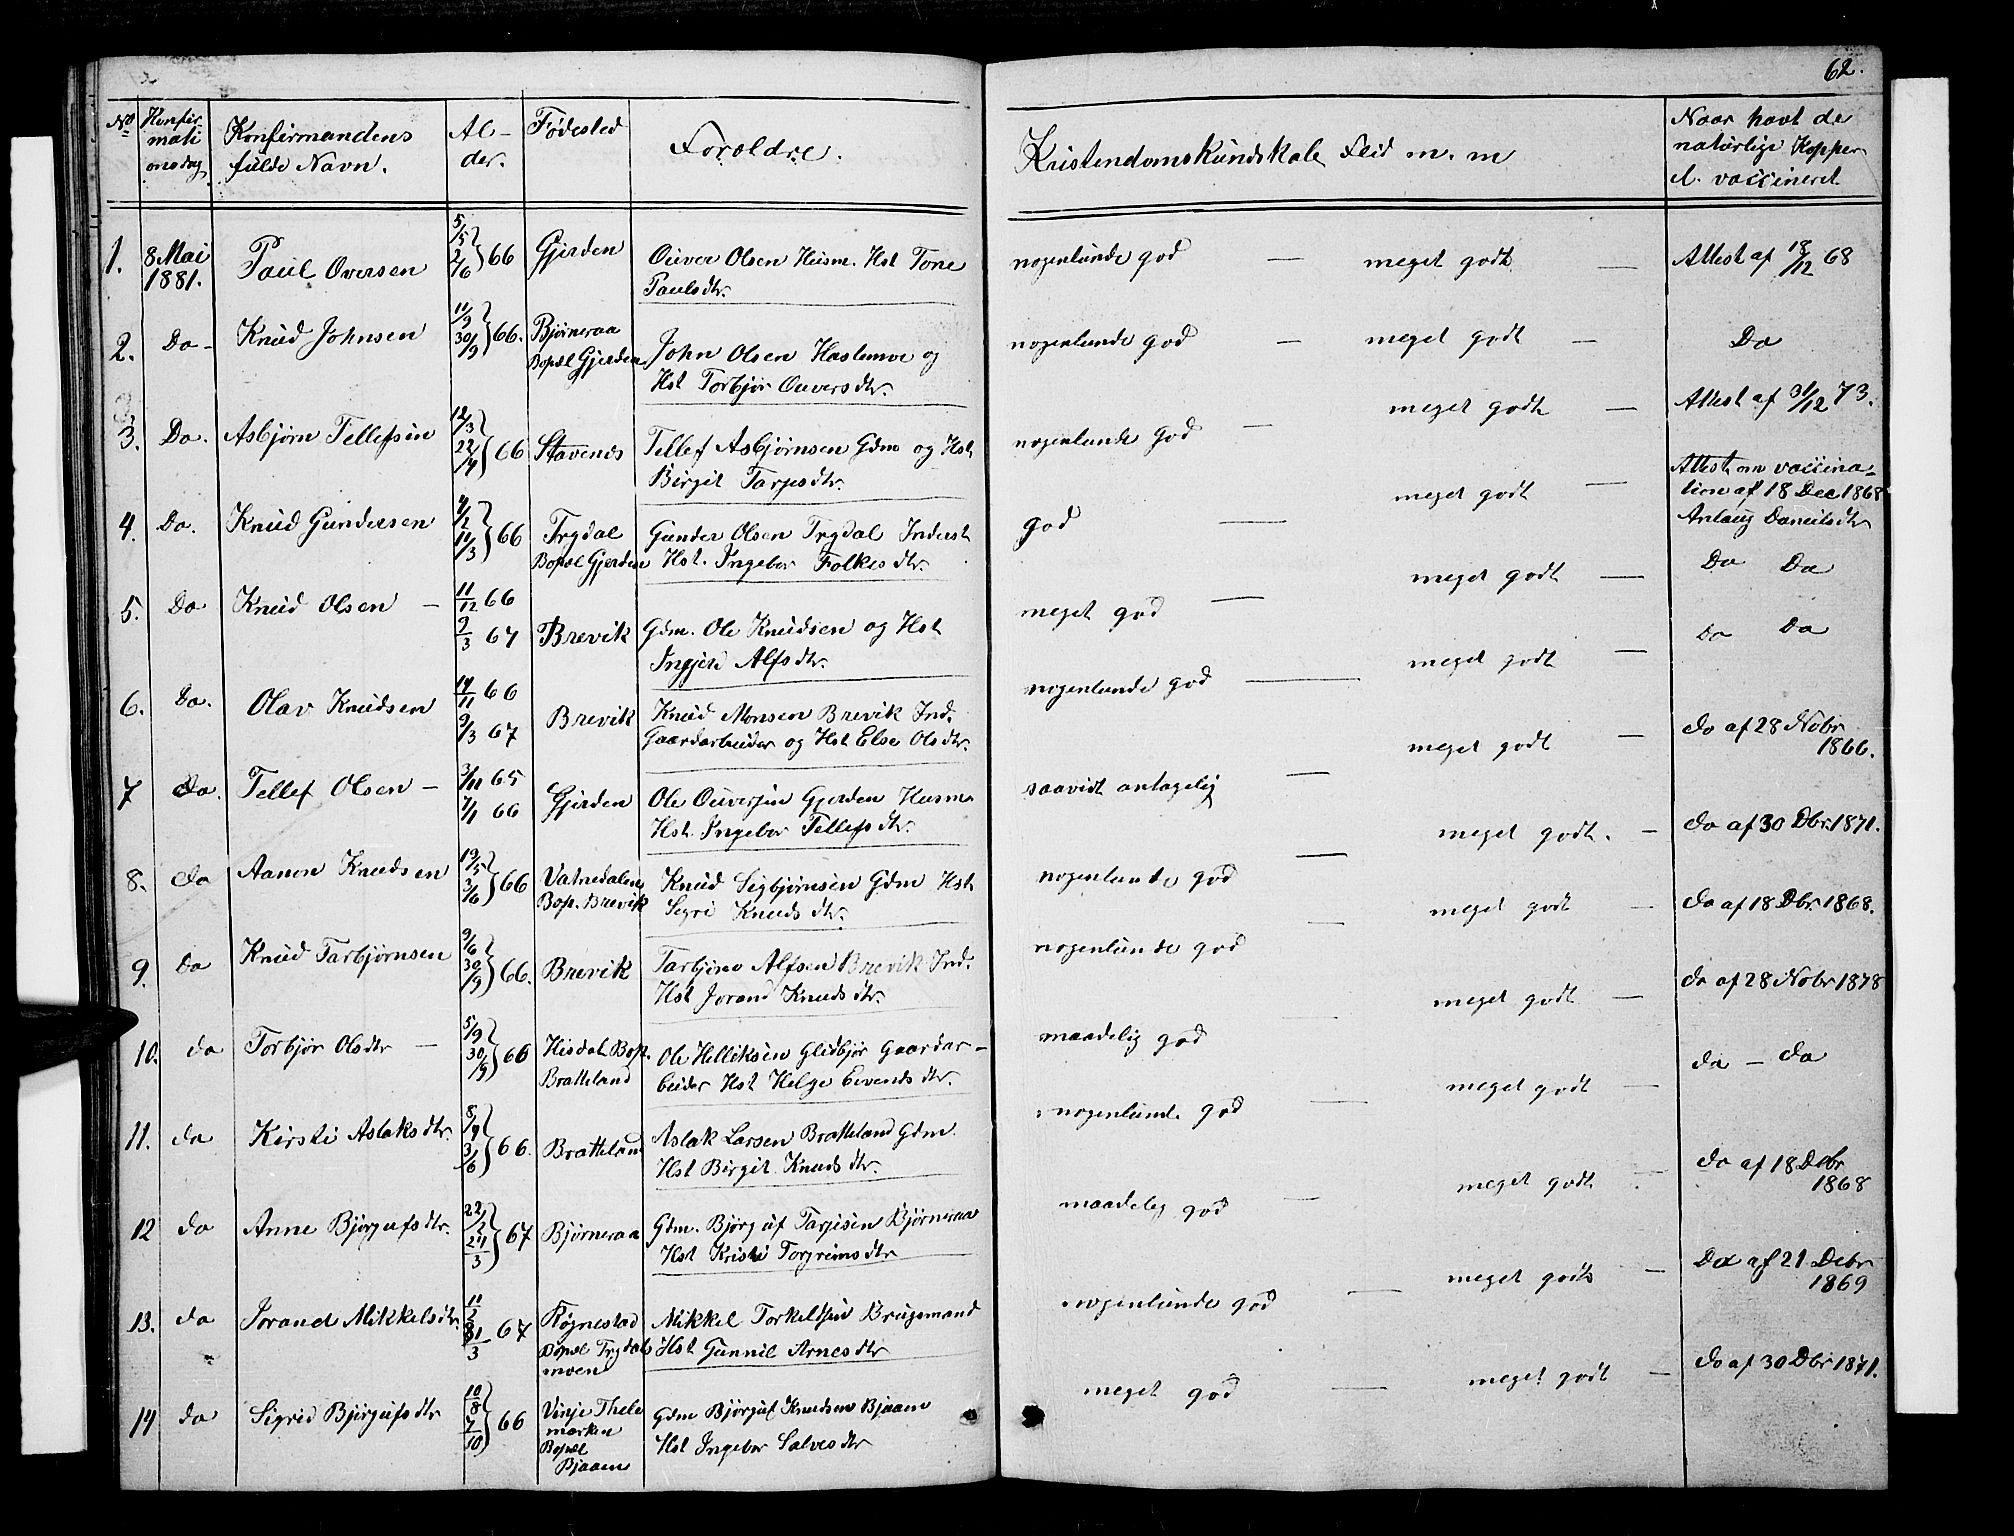 62.
No
Konfir-
mati
onsdag
Konfirmandens
fulde Navn.
Al-
der.
Fødested
Forældre.
Kristendomskundskab, Flid m. m
Naar havt de
naturlige Kopper
el. vaccineret
1. 8 Mai 1881. Paul Oversen 5/5 2/6 } 66 Gjerden Ouver Olsen Husm. Hst Tone
Paulsdtr.
nogenlunde god — meget godt — Attest af 18/12 68
2. Do- Knud Johnsen 11/9 30/9 } 66. Bjørneraa
Bopæl Gjerden John Olsen Haslemoe og
Hst Torbjør Ouversdtr.
nogenlunde god — meget godt — Do
3. Do. Asbjørn Tellefsen 12/3 22/4 } 66 Stavenes Tellef Asbjørnsen Gdm og Hst
Birgit Tarjesdtr.
nogenlunde god — meget godt — Attest af 31/12 73.
4. Do. Knud Gundersen 4/2 11/3 } 66 Trydal
Bopæl Gjerden Gunder Olsen Trydal Inderst
Hst. Ingebor Folkesdtr.
god — meget godt — Attest om vaccina-
tion af 18 Dec 1868
Anlaug Danielsdtr
5. Do Knud Olsen — 11/12 66
9/3 67 Brevik Gdm. Ole Knudsen og Hst
Ingjer Alfsdtr.
meget god — meget godt — Do Do
6. Do. Olav Knudsen 14/11 66
9/3 67 Brevik Knud Monsen Brevik Ind.
Gaardarbeider og Hst Else Olsdtr.
nogenlunde god — meget godt — Do Do
7 do. Tellef Olsen — 3/11 65
7/1 66 Gjerden Ole Ouversen Gjerden Husm.
Hst. Ingebor Tellefsdtr.
saavidt antagelig — meget godt — do af 28 Nobr
1866.
8. do Aanon Knudsen 19/5 3/6 } 66 Vatnedalen
Bop. Brevik Knud Sigbjørnsen Gdm Hst
Segri Knudsdtr.
nogenlunde god — meget godt. — do af 30 Dbr. 1871.
9. Do Knud Tarbjørnsen 9/6 30/9 } 66. Brevik Tarbjørn Alfsen Brevik Ind.
Hst Jorand Knudsdtr.
nogenlunde god — meget godt — do af 18 Dbr 1868.
10. do Torbjør Olsdtr — 5/9 30/9 } 66 Hisdal Bop.
Bratteland Ole Helliksen Glidbjør Gaardar-
beider Hst Helge Evendsdtr.
maadelig god — meget godt — do af 28 Nobr 1878
11. do Kirsti Aslaksdtr. 8/4 3/6 } 66. Bratteland Aslak Larsen Bratteland Gdm.
Hst Birgit Knudsdtr.
nogenlunde god — meget godt — do — do
12 do Anne Bjørgufsdtr. 22/2 24/3 } 67 Bjørneraa Gdm. Bjørguf Tarjesen Bjørneraa
Hst Kristi Torgrimsdtr
maadelig god — meget godt — do af 18 Debr
1868
13. do Jorand Mikkelsdtr. 11/2 31/3 67 Røgnestad
Bopæl Trydals
moen Mikkel Torkelssen Brugsmand
Hst Gunnil Arnesdtr
nogenlunde god — meget godt — Do af 21 Debr
1869
14 do Sigrid Bjørgufsdtr 10/8 7/10 } 66 Vinje Thele
marken
Bopæl
Bjaaen Gdm Bjørguf Knudsen Bjaaen
Hst Ingebor Salvesdtr
meget god — meget godt — do af 30 Dbr 1871.